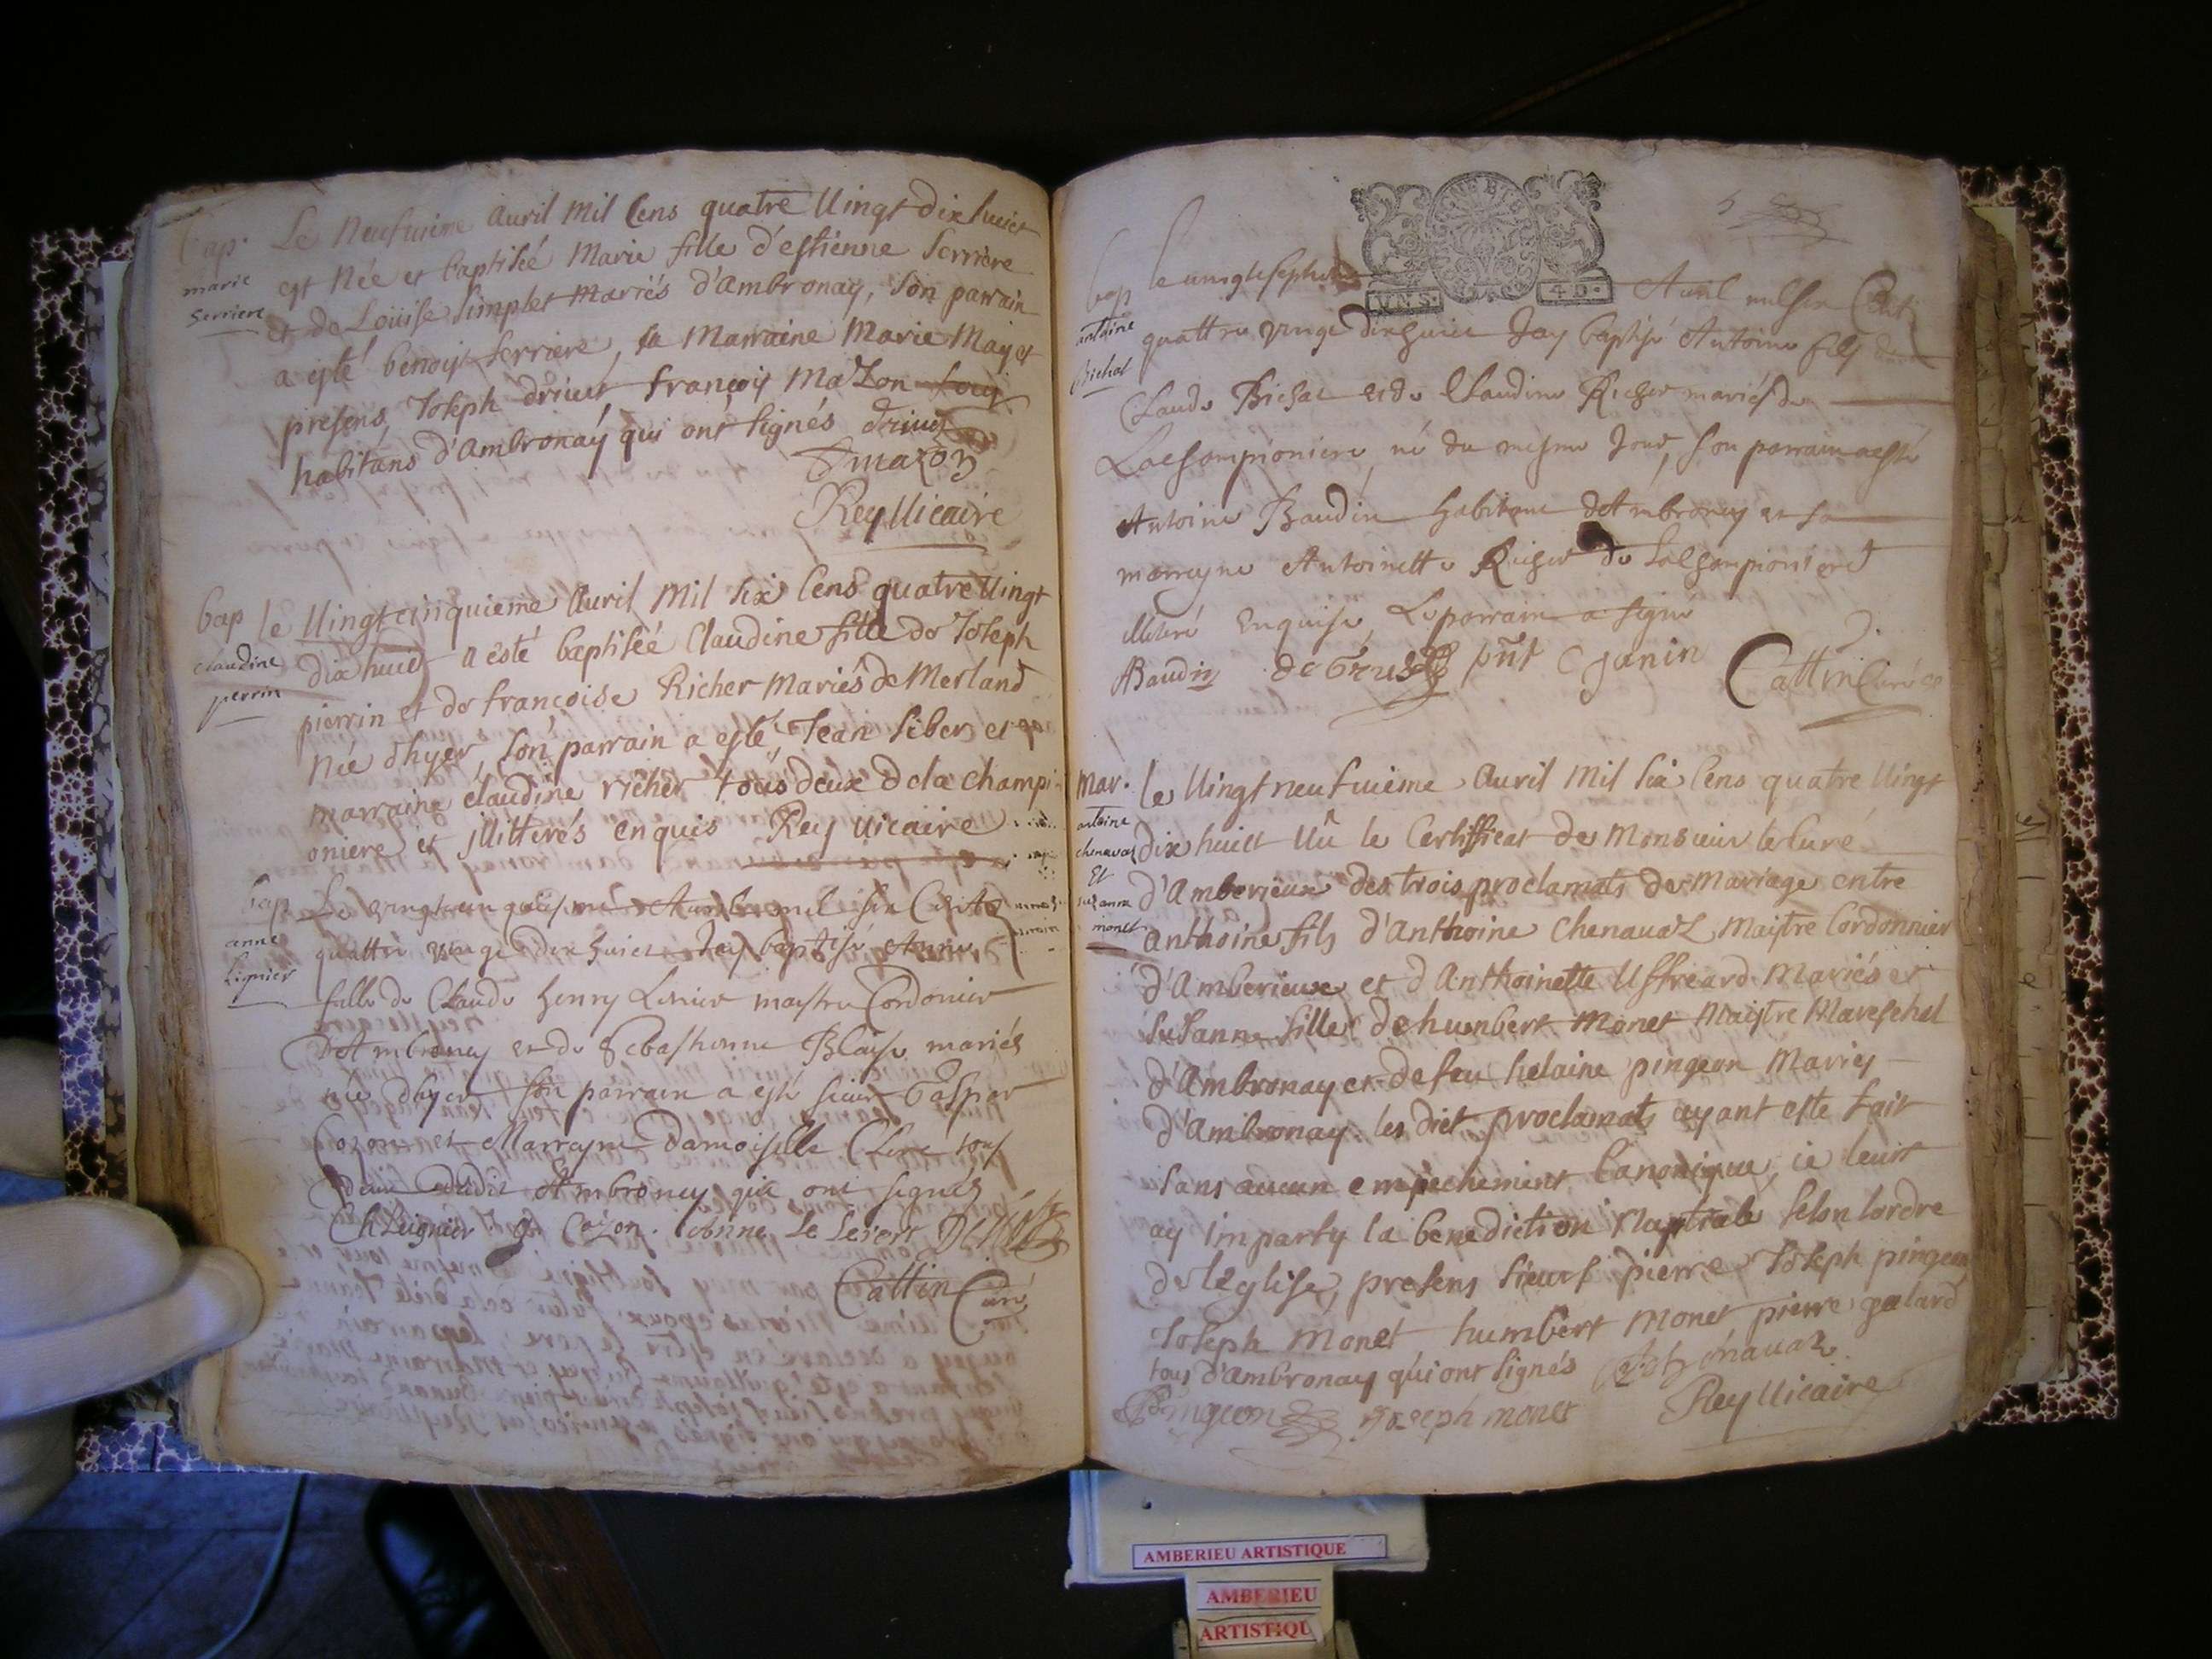 bap. Le Neufuieme auril Mil Cens quatre Uingt dix huict
marie
Serriere
est Née et baptiséé Marie fille d'estienne Serriere
et de Loüise Simplet Mariés d'Ambronay, Son parrain
a esté benoist Serriere, sa Marraine Marie Mayet
presens Joseph driuet françois Mazon
habitans d'Ambronay qui ont Signés driuet
Fmazon
Rey Uicaire
bap le Uingt cinquieme Auril Mil Six Cens quatre Uingt
claudine
perrin
dix huict a esté baptiséé Claudine fille de Joseph
pierrin et de françoise Richer Mariés de Merland
Née d'hyer, Son parrain a esté, Jean Siber et
marraine claudine richer tous deux de la champi
oniere et jllitterés enquis Rey uicaire
bap Le vingt cinquiesme Auril mil six Cents
anne
Lignier
quattre vingt dix huict Jay baptisé Anne
fille de Claude henry Linier maistre Cordonier
d'Ambronay et de Sebastienne Blaise mariés
née d'hyer son parrain a esté sieur Gaspar
Cozon et Marrayne Damoiselle Clere tous
deux dudit Ambronay qui ont signés
Ch Leignier G Cozon.
Cattin Curé
bap le uingtseptie
VNS. 4 D.
Auril mil six Cent
antoine
bichat
quattre vingt dix huict Jay baptisé Antoine fils de
Claude Bichat et de Claudine Richer mariés de
Lachampioniere, né du mesme Jour, son parrain a esté
Antoine Baudin habitant d'Ambronay et sa
marrayne Antoinette Richer de Lachampioniere
illiteré Enquise Le parrain a signé
Baudin pnt C Janin Cattin Curé
Mar. le Uingt neufuieme Auril Mil Six Cens quatre Uingt
antoine
chenavaz
Et
suzanne
monet
dix huict Uû le Certificat de Monsieur le Curé
d'Amberieux des trois proclamats de Mariage entre
anthoine fils d'anthoine Chenauaz Maistre Cordonnier
d'Amberieux et d'Anthoinette Uffreard Mariés et
Susanne fille de humbert Monet Maistre Mareschal
d'Ambronay et de feu helaine pingeon Maries
d'Ambronay. les dict proclamats ayant esté fait
Sans aucun empechement Canonique, ie leurs
ay imparty la benediction Nuptiale Selon lordre
de lEglise, presens Sieurs pierre Joseph pingeon
Joseph Monet humbert Monet pierre galard
tous d'Ambronay qui ont Signés
Pingeon Joseph monet Rey Uicaire
AMBERIEU ARTISTIQUE
AMBERIEU
ARTISTIQU